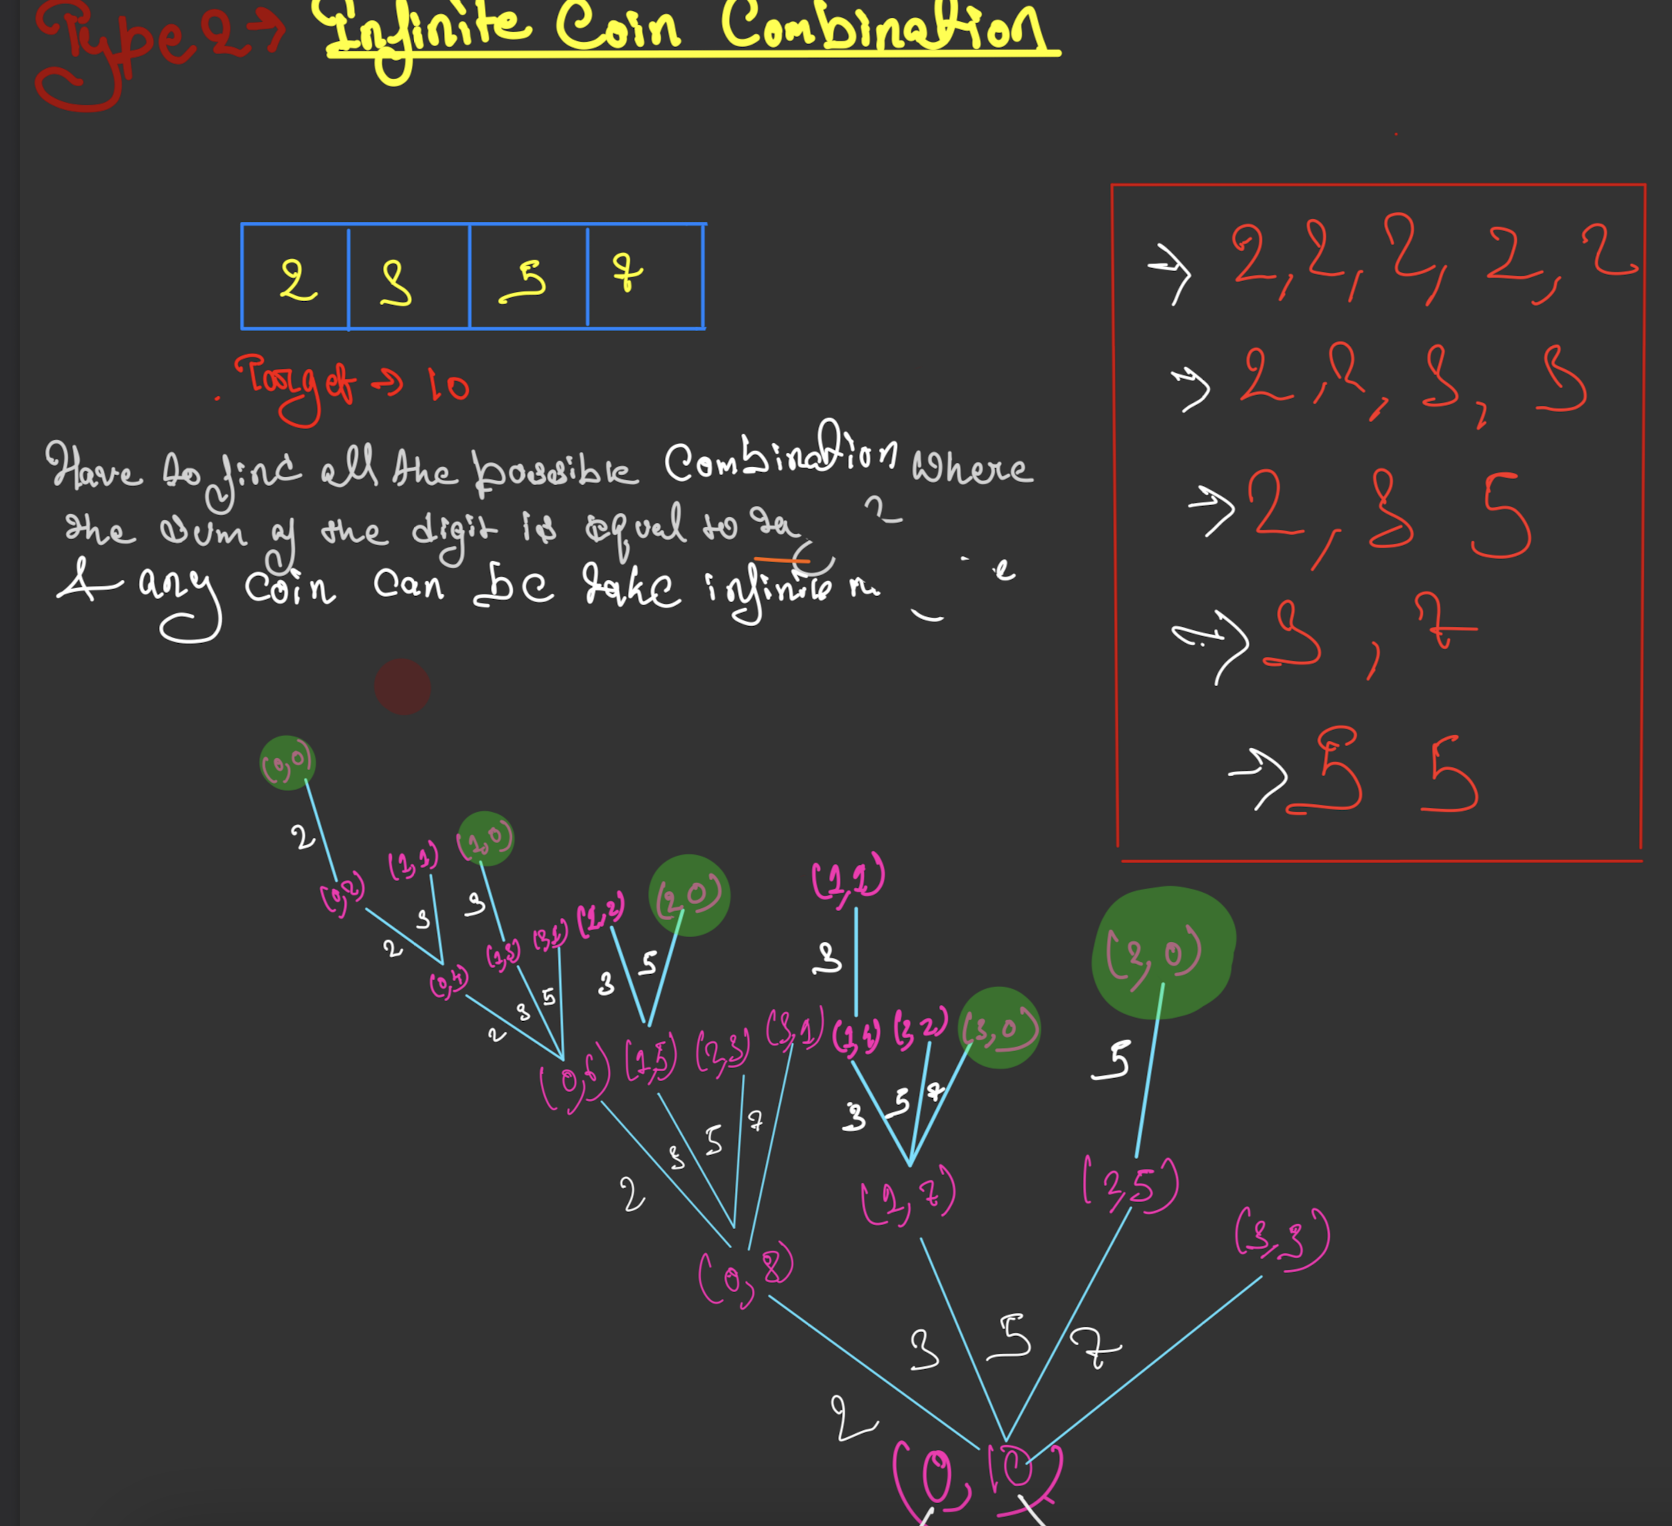 Type 2 → Infinite Coin Combination
2 3 5 7
Target → 10
Have to find all the possible Combination where
the sum of the digit is equal to
& any coin can be take infinite
→ 2, 2, 2, 2, 2
→ 2, 2, 3, 3
→ 2, 3 5
→ 3, 7
→ 5 5
(0,0)
2
(1,1) (1,0)
(0,2) 3 3
2
(1,2) (2,0)
(1,1)
(0,4) (1,3) (3,1)
3 5
3
(3,0)
2 3 5
(0,6) (1,5) (2,3) (3,1) (1,4) (3,2) (3,0)
5
2 3 5 7
3 5 7
(1,7) (2,5)
(3,3)
(0,8)
2 3 5 7
(0,10)